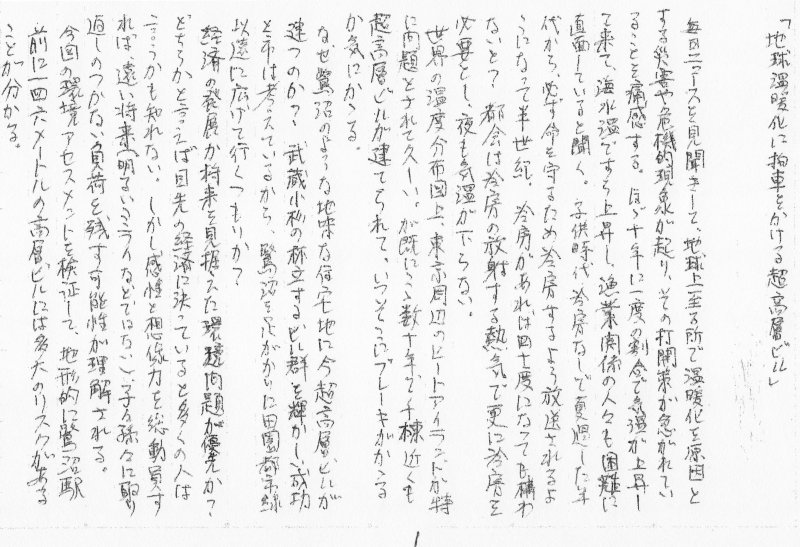 「地球温暖化に拍車をかける超高層ビル」
毎日ニュースを見聞きして、地球上至る所で温暖化を原因と
する災害や危機的現象が起り、その打開策が急がれてい
ることを痛感する。ほゞ十年に一度の割合で気温が上昇し
て来て、海水温ですら上昇し、漁業関係の人々も困難に
直面していると聞く。子供時代冷房なしで夏過した年
代から、必ず命を守るため冷房するよう放送されるよ
うになって半世紀、冷房があれば四十度になっても構わ
ないと？都会は冷房の放射する熱気で更に冷房を
必要とし、夜も気温が下らない。
世界の温度分布図上、東京周辺のヒートアイランドが特
に問題とされて久しい。が既にこゝ数十年で千棟近くも
超高層ビルが建てられて、いつそこにブレーキがかゝる
か気にかゝる。
なぜ鷺沼のような地味な住宅地に今超高層ビルが
建つのか？武蔵小杉の林立するビル群を輝かしい成功
と市は考えているから、鷺沼を足がかりに田園都市線
以遠に広げて行くつもりか？
経済の発展か将来を見据えた環境問題が優先か？
どちらかと言えば目先の経済に決っていると多くの人は
言うかも知れない。しかし感性と想像力を総動員す
れば、遠い将来(明るいミライなどではない)子々孫々に取り
返しのつかない負荷を残す可能性が理解される。
今回の環境アセスメントを検証して、地形的に鷺沼駅
前に一四六メートルの高層ビルには多大のリスクがある
ことが分かる。
1